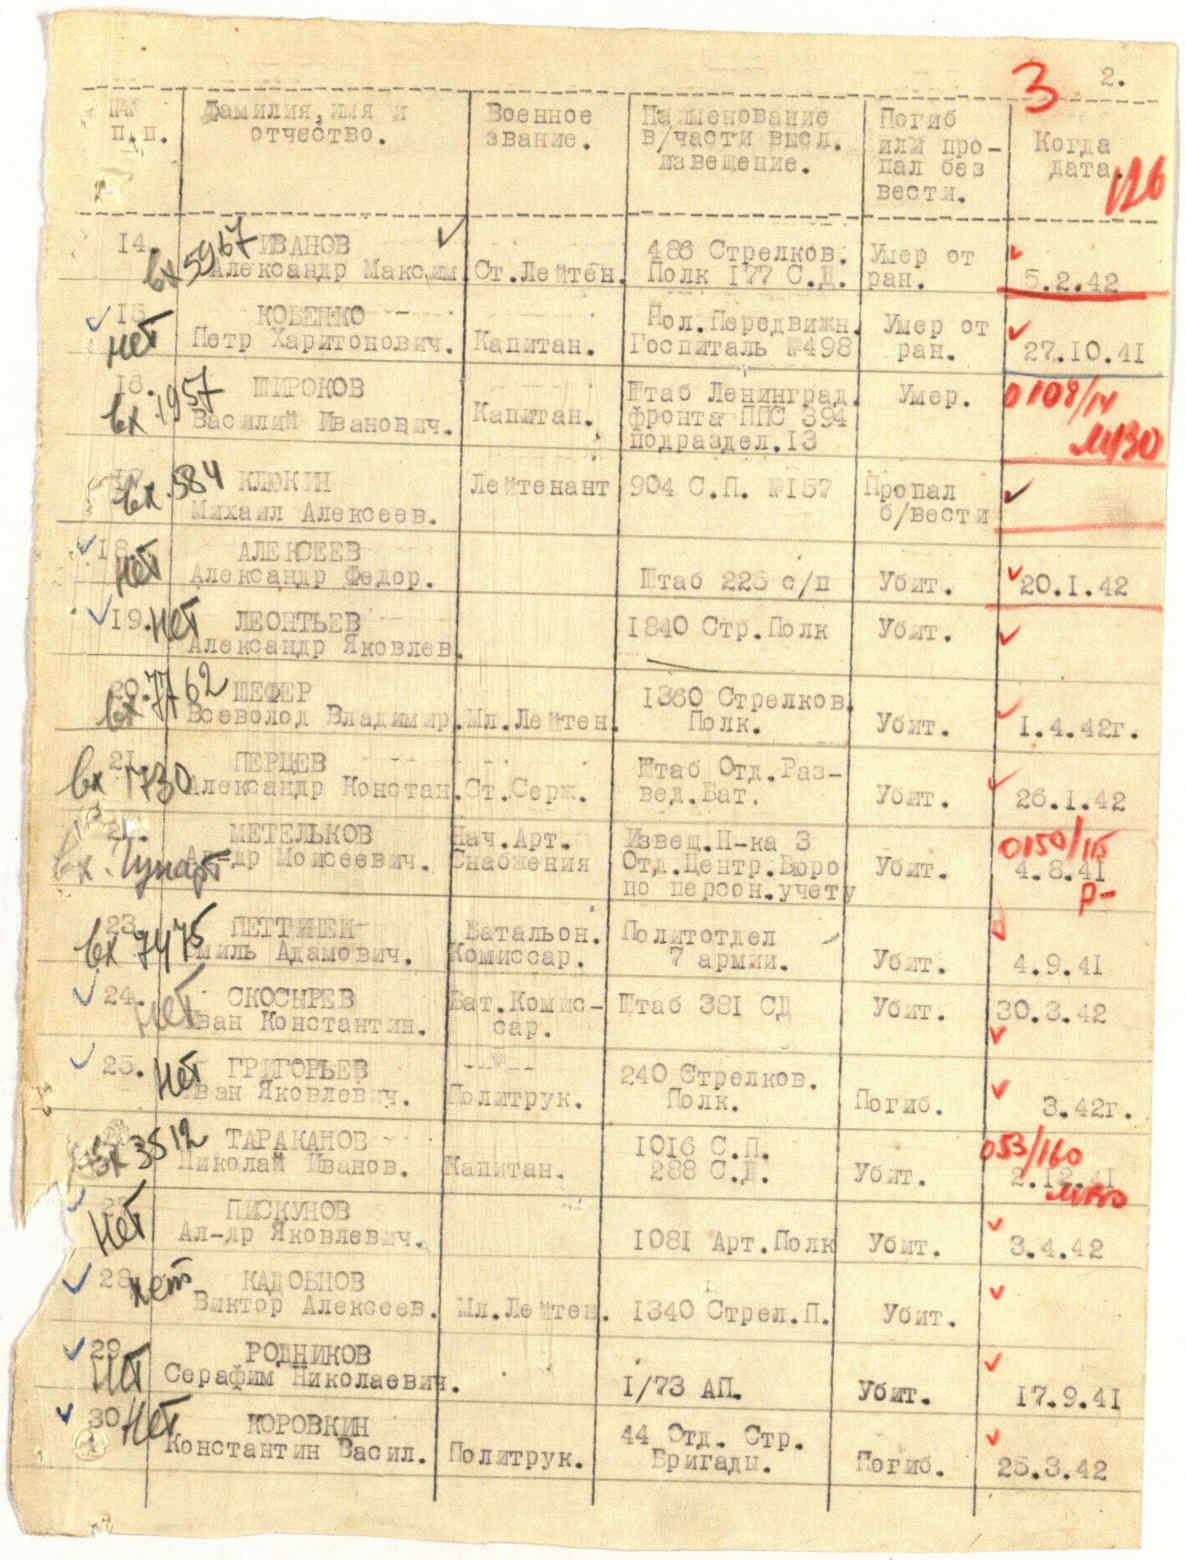 3 2.
№№ п.п.
Фамилия, имя и отчество.
Военное звание.
Наименование в/части высл. извещение.
Погиб или про-пал без вести.
Когда дата.
126
14. вх 5967 ИВАНОВ 486 Стрелков. Умер от
Александр Максим Ст.Лейтен. Полк 177 С.Д. ран. 5.2.42
15. КОБЕНКО Пол.Передвижн. Умер от
нет Петр Харитонович. Капитан. Госпиталь №498 ран. 27.10.41
16. ШИРОКОВ Штаб Ленинград. Умер. 0108/14
вх.1957 Василий Иванович. Капитан. фронта ППС 394
подраздел.13
17. вх.584 КЛЮКИН Лейтенант 904 С.П. №157 Пропал
Михаил Алексеев. б/вести
18. АЛЕКСЕЕВ
нет Александр Федор. Штаб 225 с/п Убит. 20.1.42
19. нет ЛЕОНТЬЕВ 1840 Стр.Полк Убит.
Александр Яковлев.
20. 7762 ШЕФЕР 1360 Стрелков.
вх Всеволод Владимир. Мл.Лейтен. Полк. Убит. 1.4.42г.
21. ПЕРЦЕВ Штаб Отд.Раз-
вх 1730 Александр Констан. Ст.Серж. вед.Бат. Убит. 26.1.42
МЕТЕЛЬКОВ Нач.Арт. Извещ.Н-ка 3 0150/115
вх. Ал-др Моисеевич. Снабжения Отд.Центр.Бюро Убит. 4.8.41
по персон.учету Р-
23. ПЕТТИНЕН Батальон. Политотдел
вх 7475 Эмиль Адамович. Комиссар. 7 армии. Убит. 4.9.41
24. СКОСЫРЕВ Бат.Комис- Штаб 381 СД Убит. 30.3.42
нет Иван Константин. сар.
25. нет ГРИГОРЬЕВ 240 Стрелков.
Иван Яковлевич. Политрук. Полк. Погиб. 3.42г.
вх 3512 ТАРАКАНОВ 1016 С.П. 053/160
Николай Иванов. Капитан. 288 С.Д. Убит. 2.12.41
27. ПИСКУНОВ
нет Ал-др Яковлевич. 1081 Арт.Полк Убит. 3.4.42
28. нет КАДОБНОВ
Виктор Алексеев. Мл.Лейтен. 1340 Стрел.П. Убит.
29. РОДНИКОВ
нет Серафим Николаевич. 1/73 АП. Убит. 17.9.41
30. нет КОРОВКИН 44 Отд. Стр.
Константин Васил. Политрук. Бригады. Погиб. 25.3.42